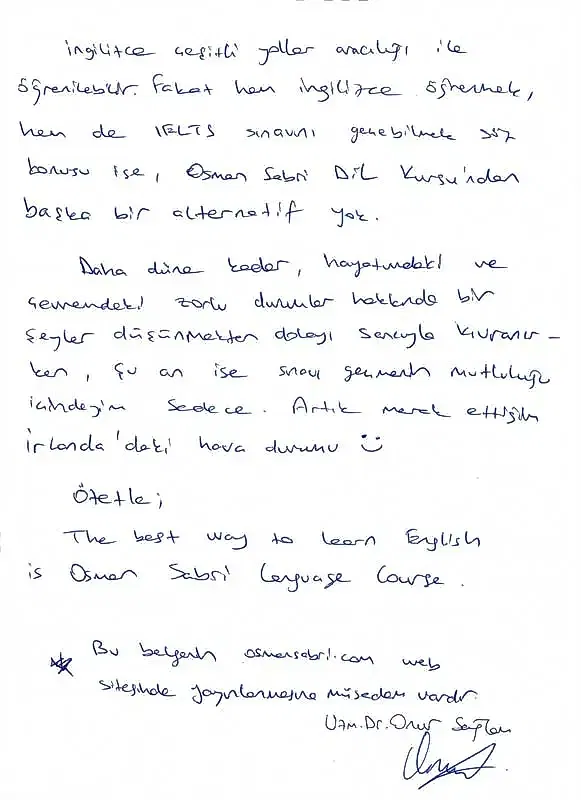 İngilizce çeşitli yollar aracılığı ile
öğrenilebilir. Fakat hem ingilizce öğrenmek,
hem de IELTS sınavını geçebilmek söz
konusu ise, Osman Sabri Dil Kursu'ndan
başka bir alternatif yok.
Daha düne kadar, hayatımdaki ve
çevremdeki zorlu durumlar hakkında bir
şeyler düşünmekten dolayı sancıyla kıvranır-
ken, şu an ise sınavı geçmenin mutluluğu
içindeyim sadece. Artık merak ettiğim
İrlanda'daki hava durumu :)
Özetle;
The best way to learn English
is Osman Sabri Language Course.
* Bu belgenin osmansabri.com web
sitesinde yayınlanmasına müsadem vardır.
Uzm. Dr. Onur